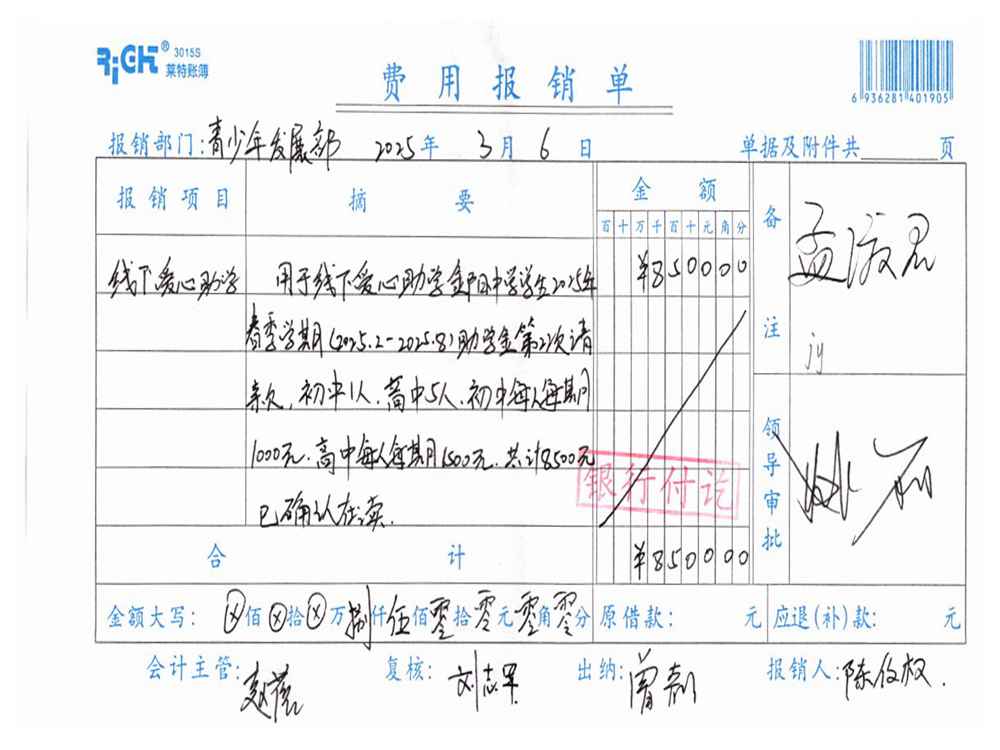 RiCHT® 3015S
莱特账簿
费用报销单
6 936281 401905
报销部门:青少年发展部 2025年3月6日 单据及附件共 页
报销项目 摘要 金额 备注
百十万千百十元角分
线下爱心助学 用于线下爱心助学金阳中学学生2025年 ¥850000
春季学期(2025.2-2025.8)助学金第2次请
款,初中1人,高中5人,初中每人每期
1000元,高中每人每期1500元,共计8500元
已确认在读.
jy
领导审批
银行付讫
合计 ¥850000
金额大写:ⓧ佰ⓧ拾ⓧ万捌仟伍佰零拾零元零角零分 原借款: 元 应退(补)款: 元
会计主管: 复核:刘志军 出纳:曾 报销人:陈俊权.